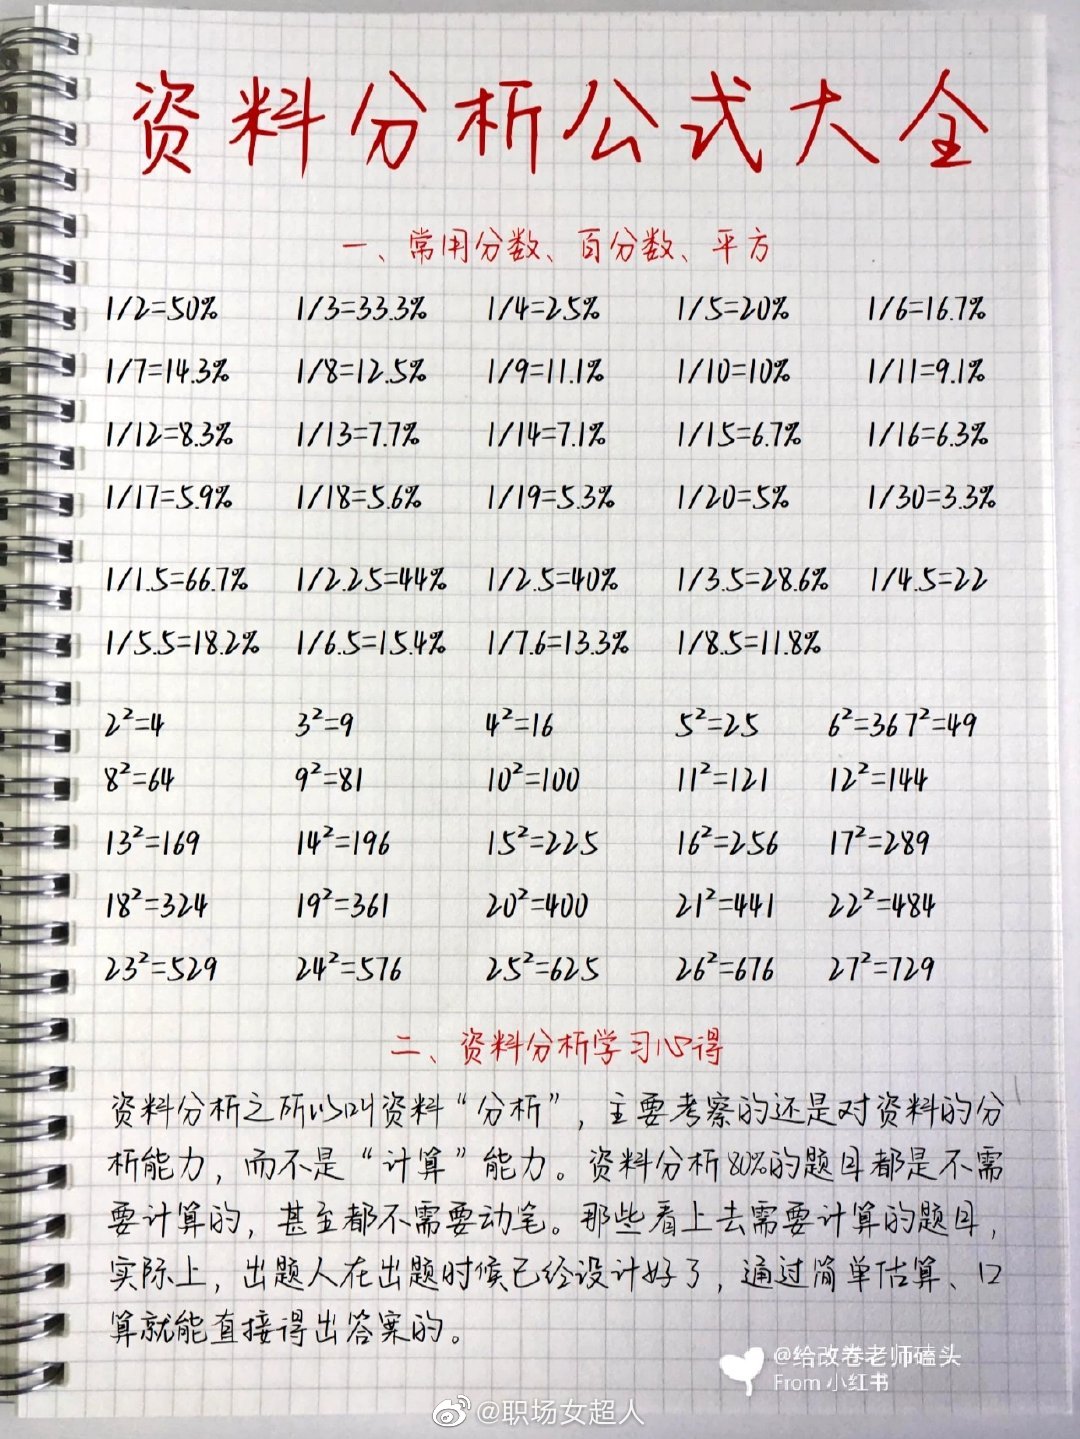 资料分析公式大全
一、常用分数、百分数、平方
1/2=50% 1/3=33.3% 1/4=25% 1/5=20% 1/6=16.7%
1/7=14.3% 1/8=12.5% 1/9=11.1% 1/10=10% 1/11=9.1%
1/12=8.3% 1/13=7.7% 1/14=7.1% 1/15=6.7% 1/16=6.3%
1/17=5.9% 1/18=5.6% 1/19=5.3% 1/20=5% 1/30=3.3%
1/1.5=66.7% 1/2.25=44% 1/2.5=40% 1/3.5=28.6% 1/4.5=22
1/5.5=18.2% 1/6.5=15.4% 1/7.6=13.3% 1/8.5=11.8%
2²=4 3²=9 4²=16 5²=25 6²=36 7²=49
8²=64 9²=81 10²=100 11²=121 12²=144
13²=169 14²=196 15²=225 16²=256 17²=289
18²=324 19²=361 20²=400 21²=441 22²=484
23²=529 24²=576 25²=625 26²=676 27²=729
二、资料分析学习心得
资料分析之所以叫资料“分析”，主要考察的还是对资料的分
析能力，而不是“计算”能力。资料分析80%的题目都是不需
要计算的，甚至都不需要动笔。那些看上去需要计算的题目，
实际上，出题人在出题时候已经设计好了，通过简单估算、口
算就能直接得出答案的。
@给改卷老师磕头
From 小红书
@职场女超人